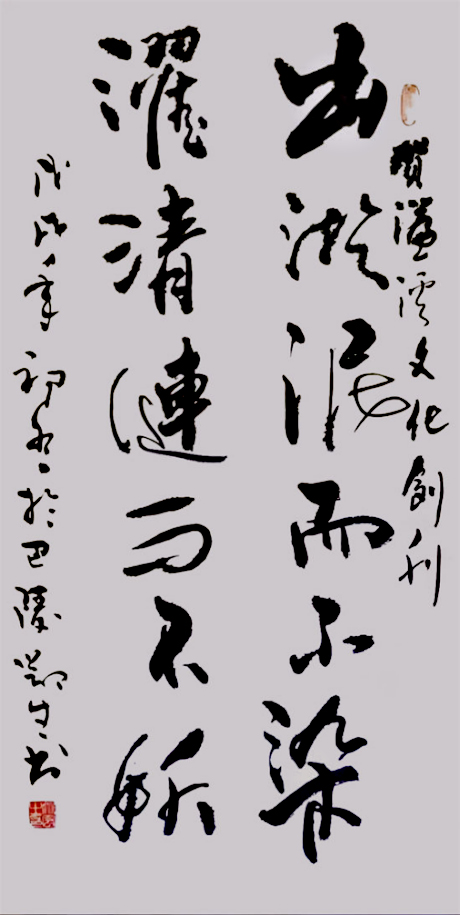 賀濂溪文化創刊
出淤泥而不染
濯清漣而不妖
戊戌年初冬於巴陵書